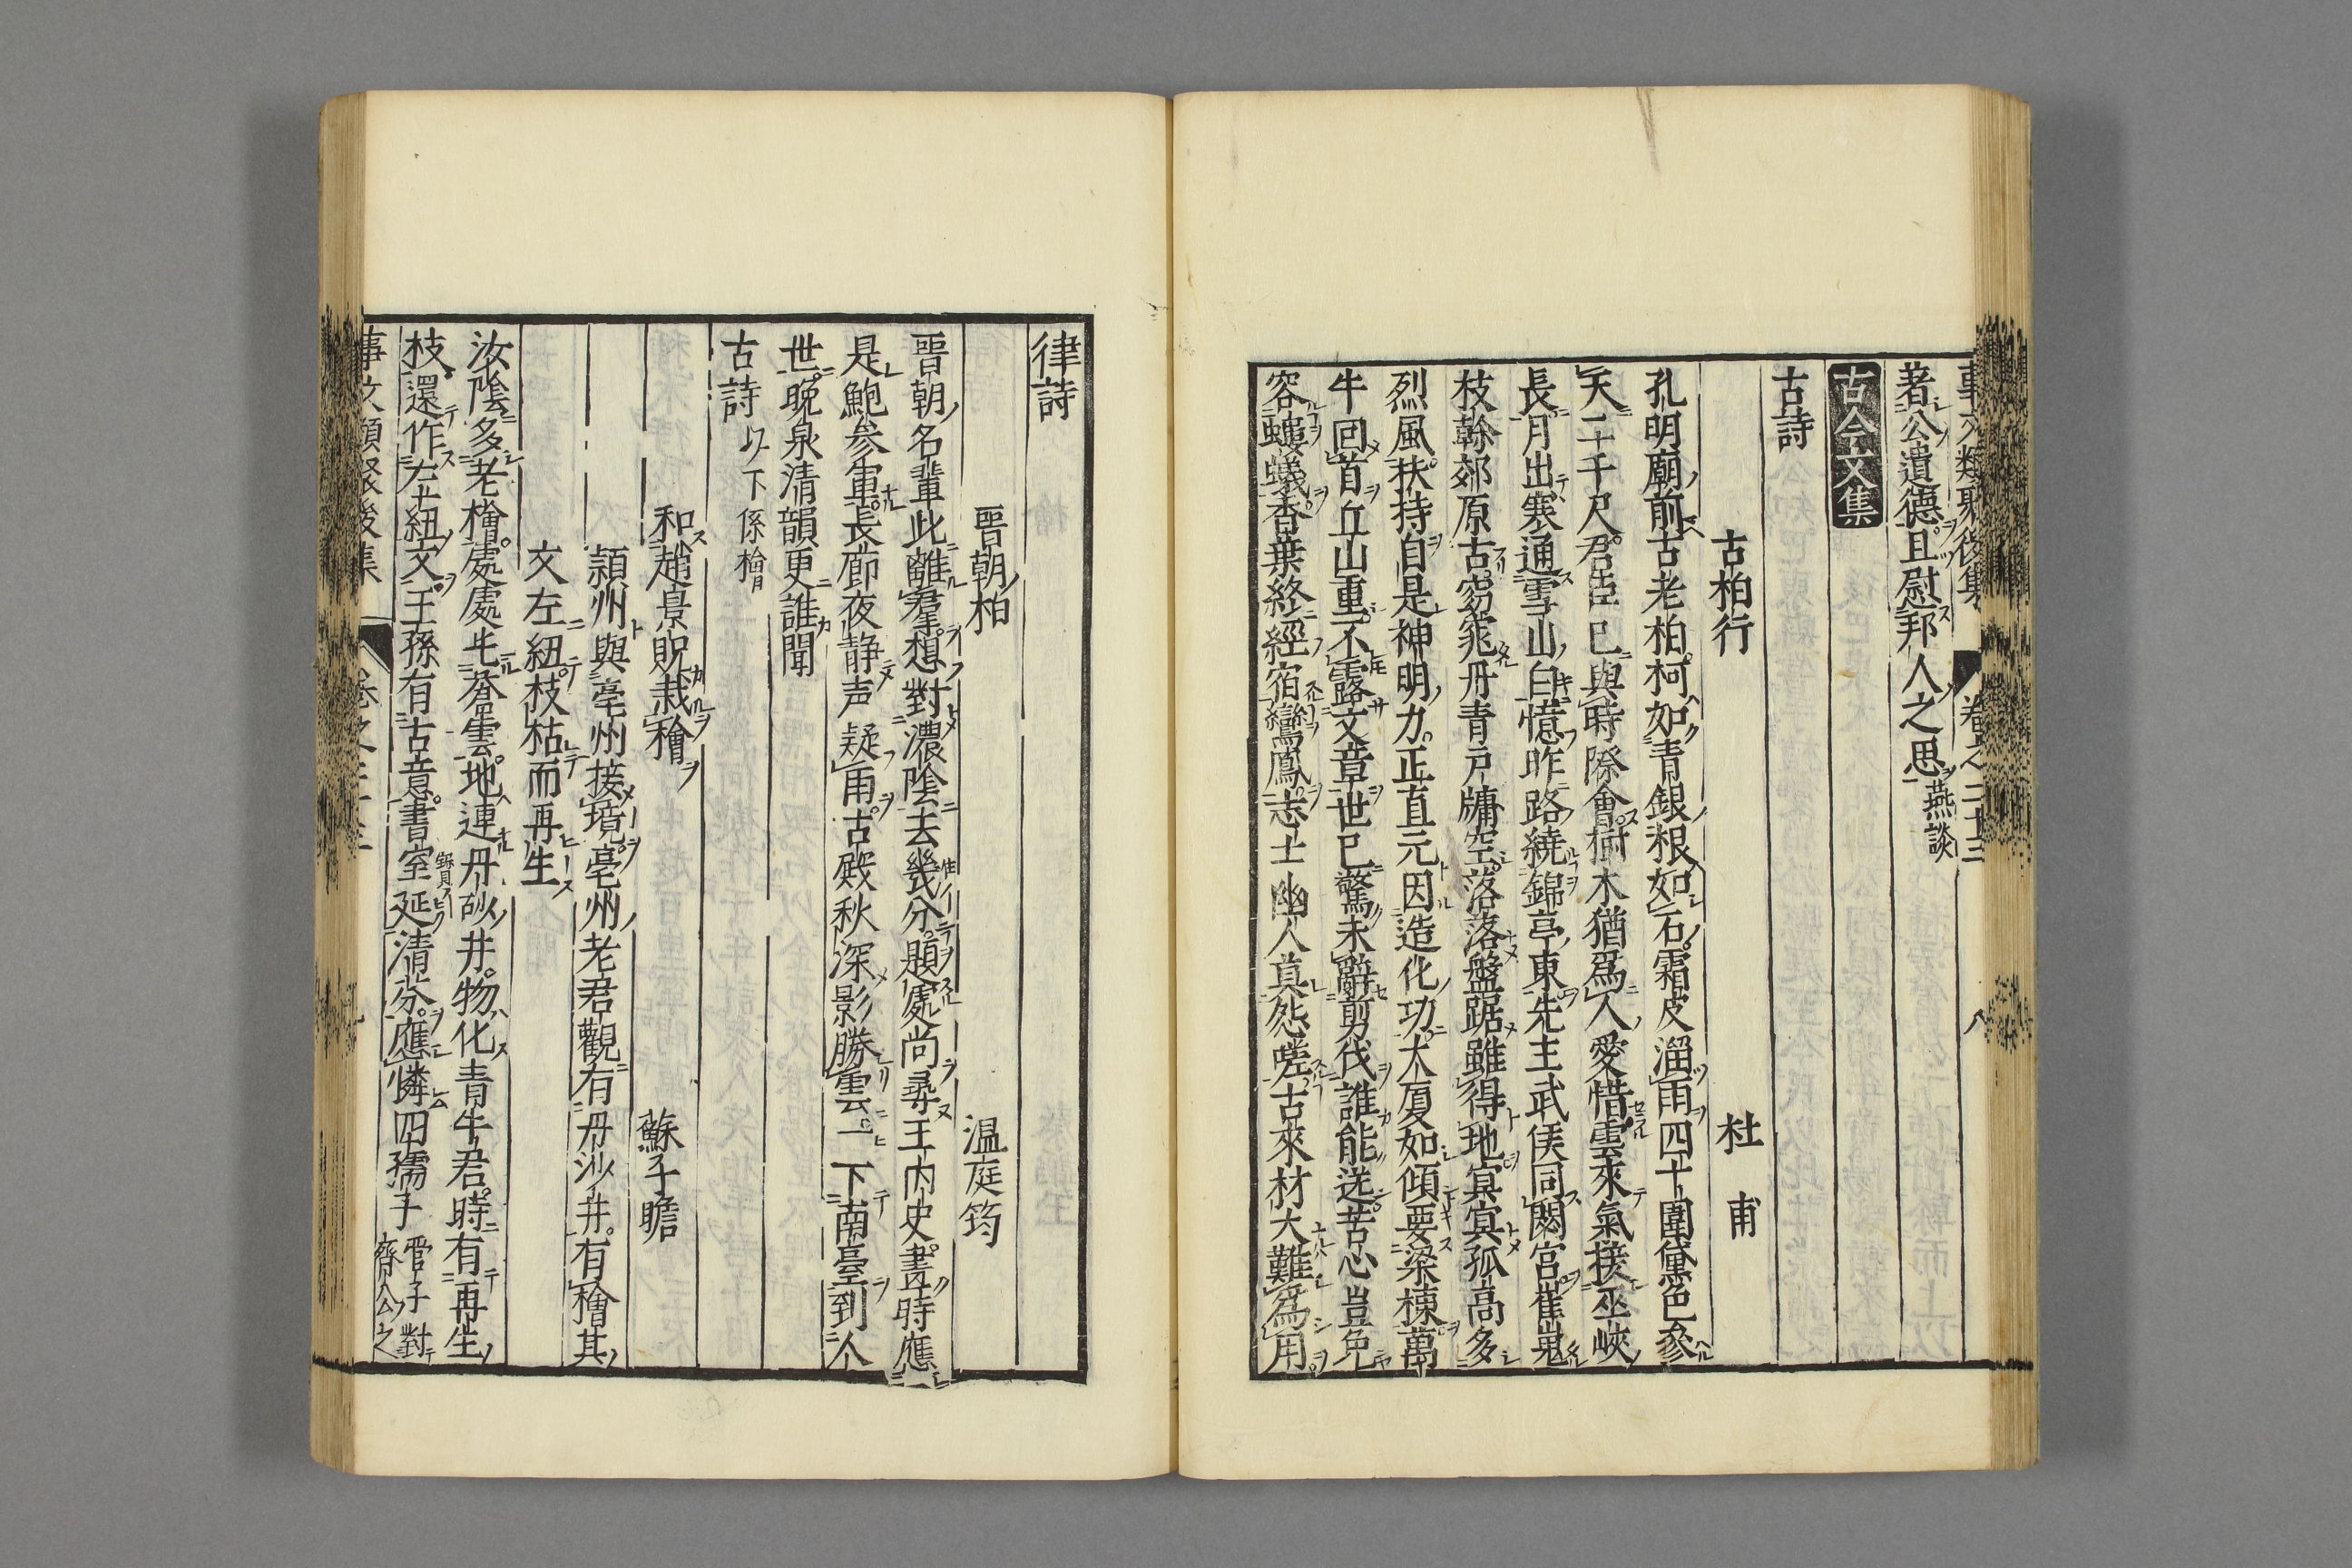 事文類聚後集 卷之二十三 八
著公遺德且慰邦人之思燕談
古今文集
古詩
古柏行 杜甫
孔明廟前古老柏柯如青銀根如石霜皮溜雨四十圍黛色參
天二千尺君臣已與時際會樹木猶爲人愛惜雲來氣接巫峽
長月出寒通雪山白憶昨路繞錦亭東先主武侯同閟宮崔嵬
枝幹郊原古窈窕丹青戶牖空落落盤踞雖得地冥冥孤高多
烈風扶持自是神明力正直元因造化功大厦如傾要梁棟萬
牛回首丘山重不露文章世已驚未辭剪伐誰能送苦心豈免
容螻蟻香葉終經宿鸞鳳志士幽人莫怨嗟古來材大難爲用
律詩
晉朝柏 温庭筠
晉朝名輩此離羣想對濃陰去幾分題處尚尋王内史畫時應
是鮑参軍長廊夜静声疑雨古殿秋深影勝雲一下南臺到人
世晩泉清韻更誰聞
古詩以下係檜
和趙景貺栽檜 蘇子瞻
頴州與亳州接境亳州老君觀有丹沙井有檜其
文左紐枝枯而再生
汝陰多老檜處處屯蒼雲地連丹砂井物化青牛君時有再生
枝還作左紐文王孫有古意書室延清芬應憐四孺子管子對
齊公之
事文類聚後集 卷之二十三